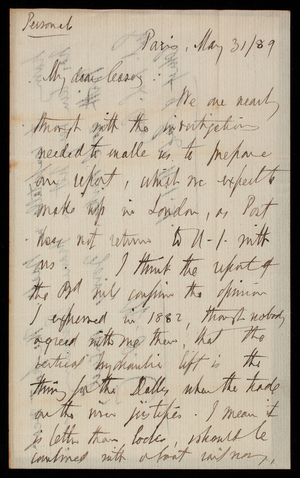 Personal
Paris, May 31/89
My dear Casey:
We are nearly
through with the investigations
needed to enable us to prepare
our report, which we expect to
make up in London, as Post
does not return to U.S. with
us. I think the report of
the Bd will confirm the opinion
I expressed in 1882, though nobody
agreed with me then, that the
vertical hydraulic lift is the
thing for the Dalles, when the trade
on the river justifies. I mean it
is better than locks, & should be
combined with a boat railway,